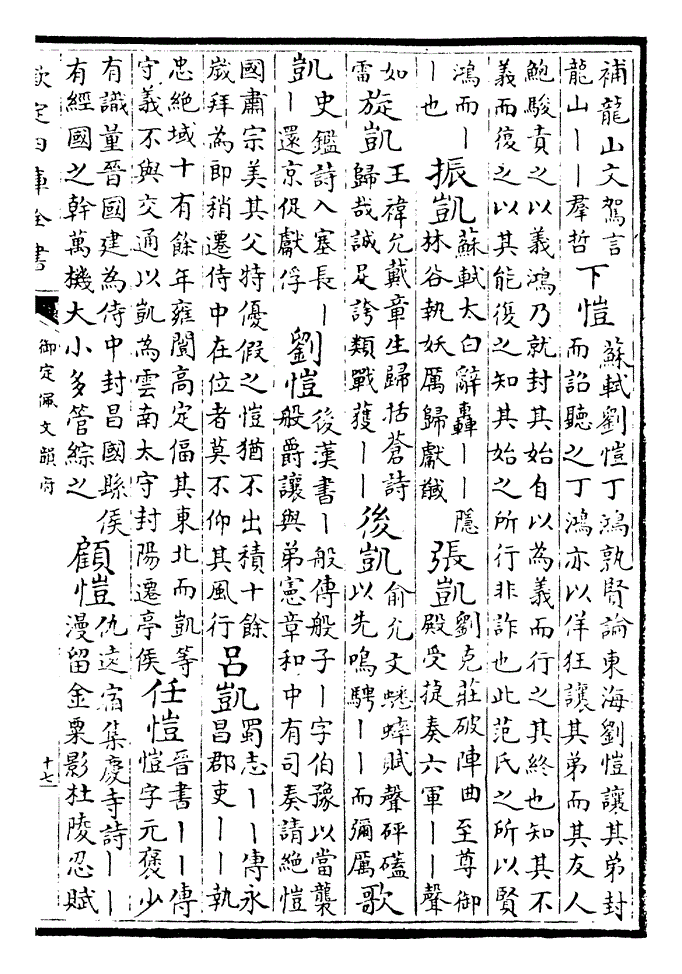 補龍山文駕言
龍山丨丨羣哲
下愷
蘇軾劉愷丁鴻孰賢論東海劉愷讓其弟封
而詔聽之丁鴻亦以佯狂讓其弟而其友人
鮑駿責之以義鴻乃就封其始自以為義而行之其終也知其不
義而復之以其能復之知其始之所行非詐也此范氏之所以賢
鴻而丨
丨也
振凱
蘇軾太白辭轟丨丨隱
林谷執妖厲歸獻馘
張凱
劉克莊破陣曲至尊御
殿受捷奏六軍丨丨聲
如
雷
旋凱
王禕允戴章生歸括蒼詩
歸哉誠足誇類戰獲丨丨
後凱
俞允文蟋蟀賦聲砰礚
以先鳴騁丨丨而彌厲
歌
凱
史鑑詩入塞長丨
丨還京促獻俘
劉愷
後漢書丨般傳般子丨字伯豫以當襲
般爵讓與弟憲章和中有司奏請絕愷
國肅宗美其父特優假之愷猶不出積十餘
歲拜為郎稍遷侍中在位者莫不仰其風行
呂凱
蜀志丨丨傳永
昌郡吏丨丨執
忠絕域十有餘年雍闓高定偪其東北而凱等
守義不與交通以凱為雲南太守封陽遷亭侯
任愷
晉書丨丨傳
愷字元褒少
有識量晉國建為侍中封昌國縣侯
有經國之幹萬機大小多管綜之
顧愷
仇遠宿集慶寺詩丨丨
漫留金粟影杜陵忍賦
欽定四庫全書
御定佩文韻府
十七